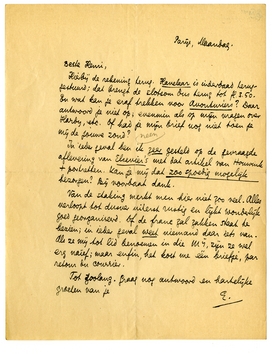 Parijs, Maandag.
Beste Henri,
Hierbij de rekening terug. Havelaar is inderdaad terug-
gestuurd; dat brengt de slotsom dus terug tot f 8.50.
En wat kan je eraf trekken voor Avonturiers? Daar
antwoord je niet op; evenmin als op mijn vragen over
Harby, etc. Of had je mijn brief nog niet toen je
mij de jouwe zond? neen
In ieder geval ben ik zeer gesteld op de gevraagde
aflevering van Elsevier's met dat artikel van Houwink
+ portretten. Kan je mij dat zoo spoedig mogelijk
bezorgen? Bij voorbaat dank.
Van de staking merkt men hier niet zoo veel. Alles
verloopt tot dusver uiterst rustig en lijkt wonderlijk
goed georganiseerd. Of de franc zal zakken staat te
bezien; in ieder geval weet niemand daar iets van.
Als ze mij tot lid benoemen in die Mij, zijn ze wel
erg naïef; maar enfin, het kost me een briefje, par
retour du courrier.
Tot zoolang. Graag nog antwoord en hartelijke
groeten van je
E.